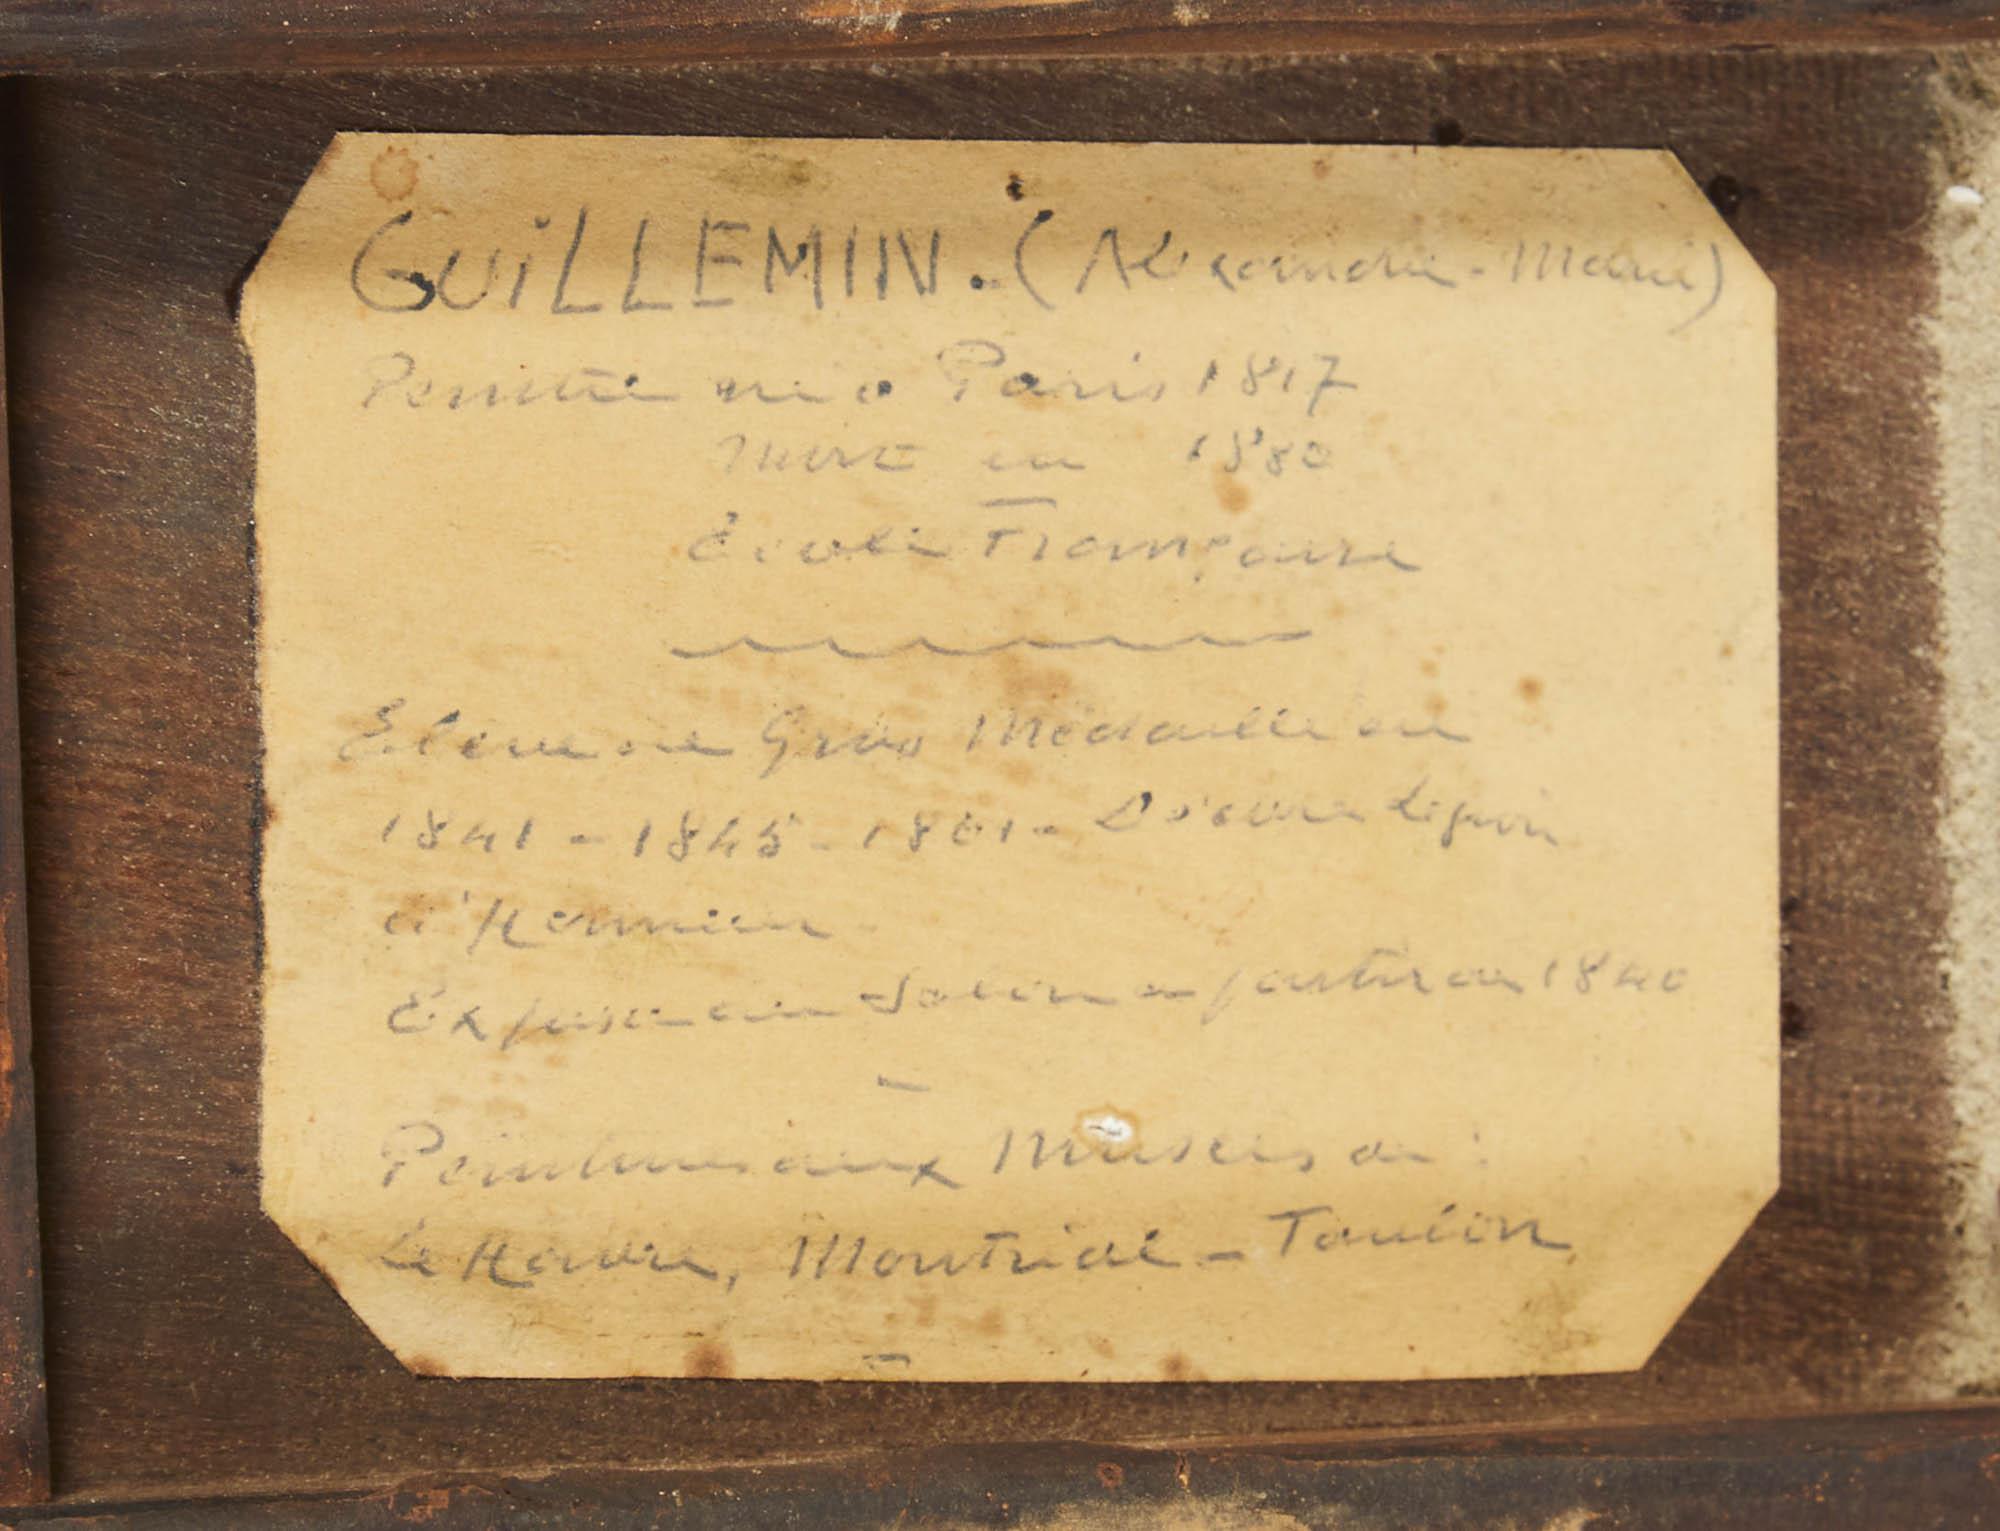 GUiLLEMIN. (Alexandre-Marie)
Peintre né à Paris 1817
Mort en 1880
École Française
Eleve de Gros Médaille en
1841 - 1845 - 1861 - Décoré Légion
d'Honneur
Expose au Salon a partir de 1840
Peintures aux Musées de :
Le Havre, Montréal - Toulon